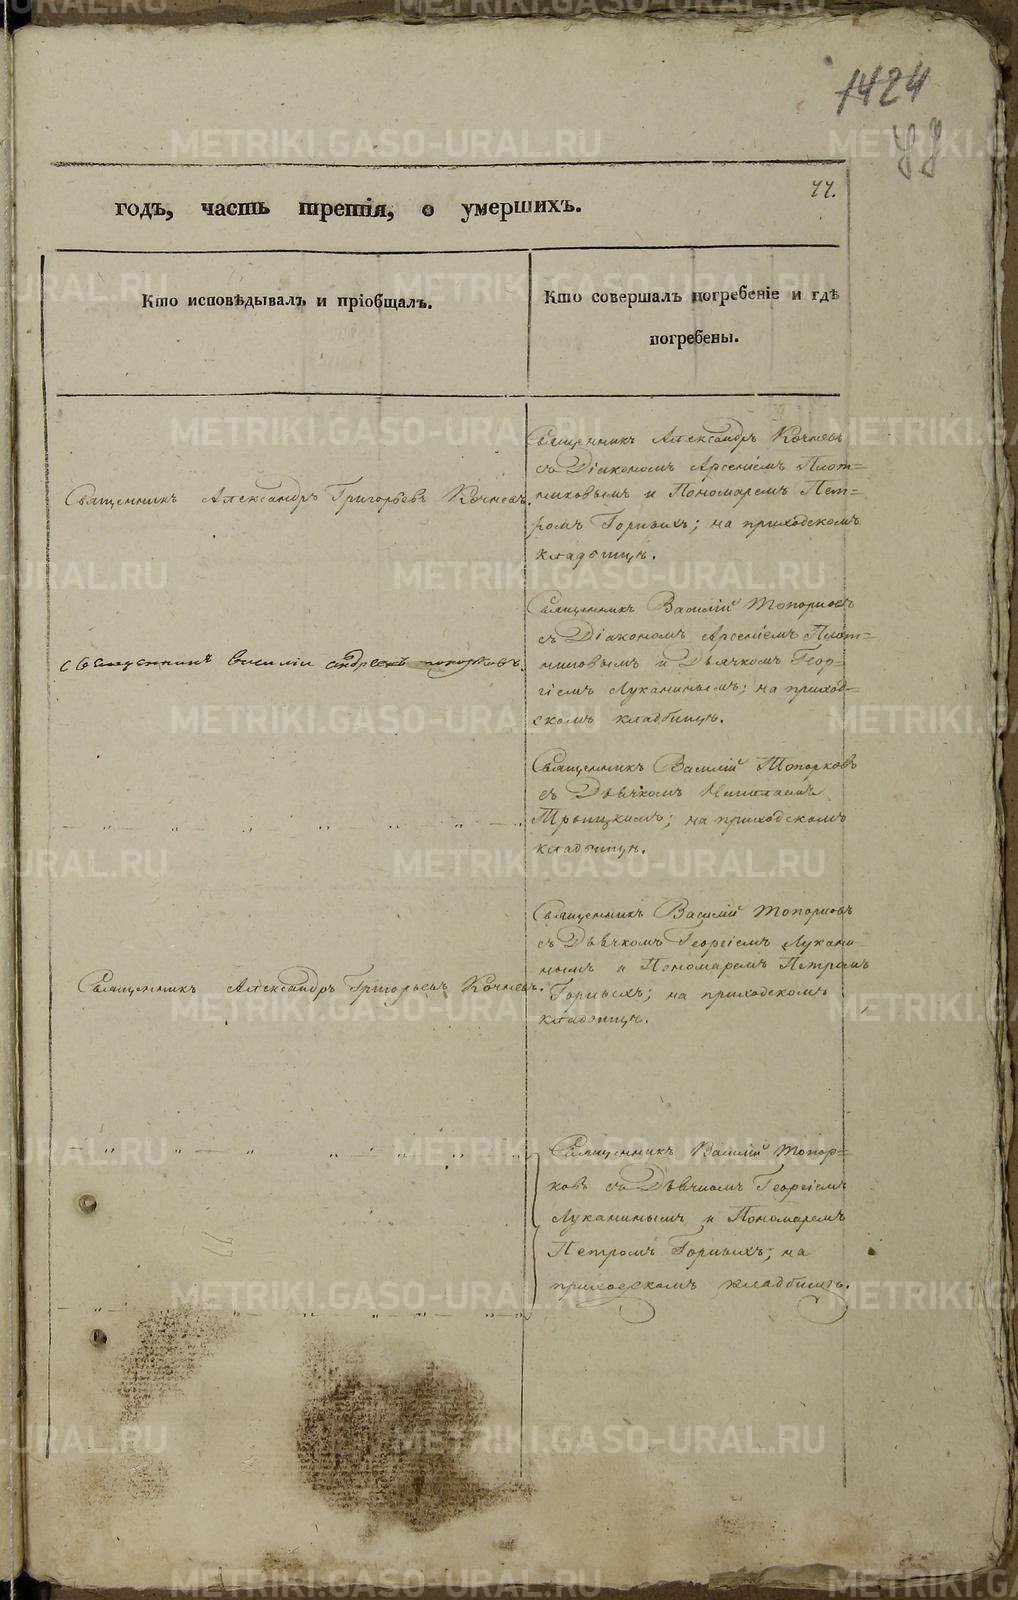 1424
77.
годъ, часть третія, о умершихъ.
Кто исповѣдывалъ и пріобщалъ.
Кто совершалъ погребеніе и гдѣ
погребены.
Священникъ Александръ Кочневъ
съ Діакономъ Арсеніемъ Плот=
никовымъ и Пономаремъ Пет=
ромъ Горныхъ; на приходскомъ
кладбищѣ.
Священникъ Александръ Григорьевъ Кочневъ.
Священникъ Василій Топорковъ
съ Діакономъ Арсеніемъ Плот=
никовымъ и Дьячкомъ Геор=
гіемъ Луканинымъ; на приход=
скомъ кладбищѣ.
священникъ василіи андреевъ топорковъ.
Священникъ Василій Топорковъ
съ Дьячкомъ
Троицкимъ; на приходскомъ
кладбищѣ.
— „ — „ — „ „ „ „ — „
Священникъ Василій Топорковъ
съ Дьячкомъ Георгіемъ Лукани-
нымъ и Пономаремъ Петромъ
Горныхъ; на приходскомъ
кладбищѣ.
Священникъ Александръ Григорьевъ Кочневъ.
— „ — „ — „ „ „ „ „ „
Священникъ Василій Топор=
ковъ съ Дьячкомъ Георгіемъ
Луканинымъ и Пономаремъ
Петромъ Горныхъ; на
приходскомъ кладбищѣ.
— „ — „ — „ — „ — „ — „ — „
METRIKI.GASO-URAL.RU